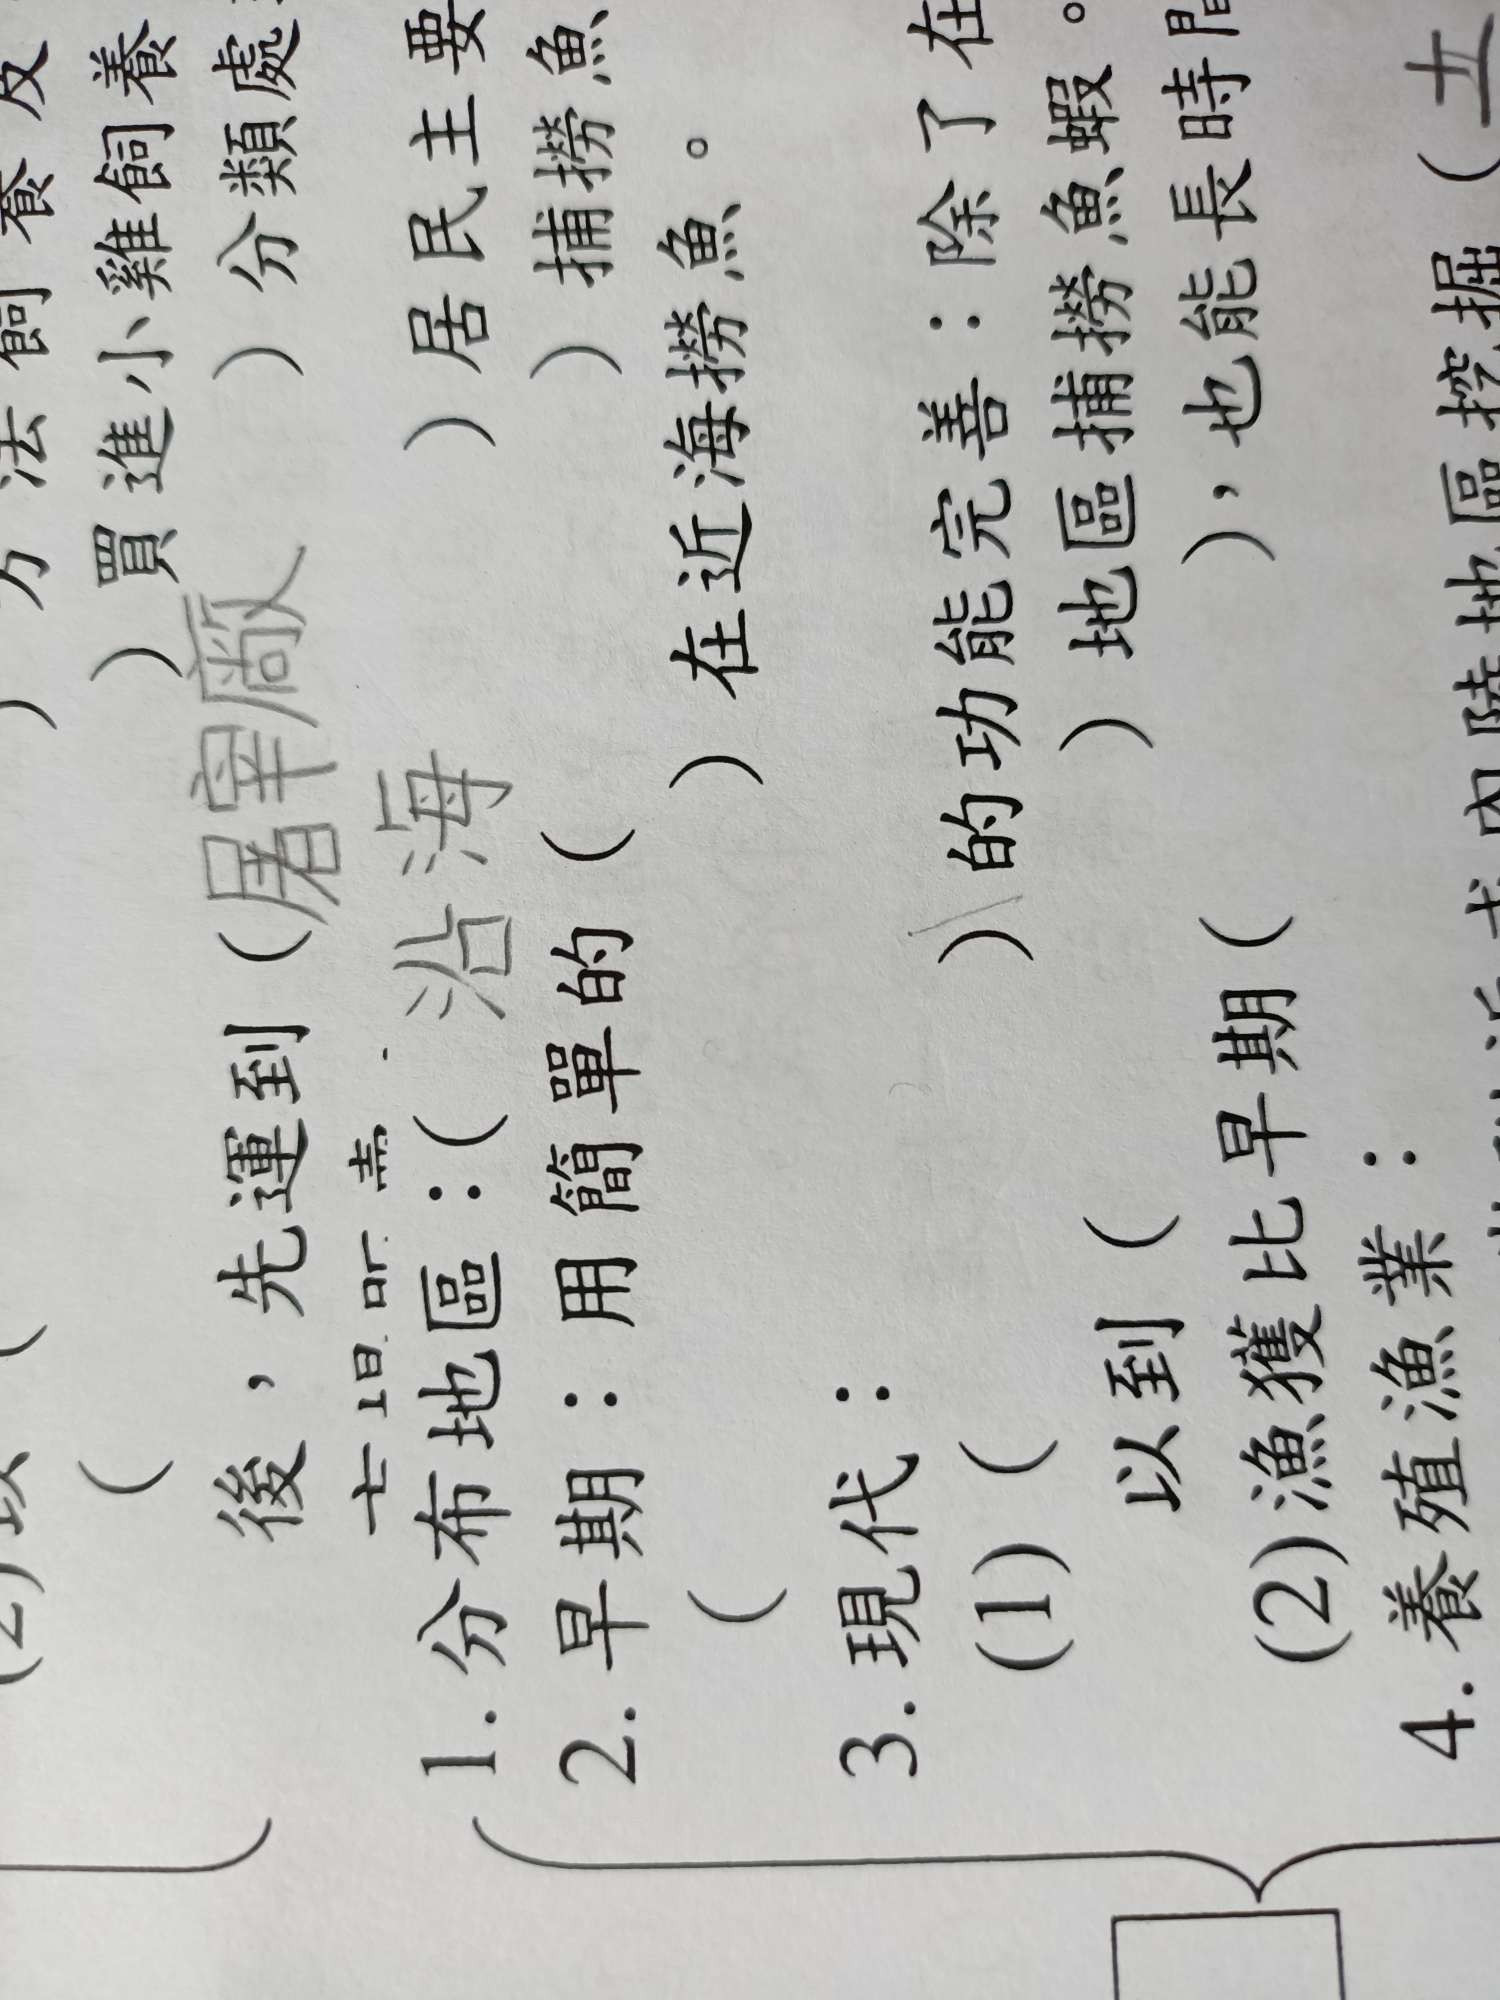 )方法飼養及
( )買進小雞飼養
後，先運到(屠宰廠)分類處
1.分布地區：(沿海)居民主要
2.早期：用簡單的( )捕撈魚
( )在近海撈魚。
3.現代：
(1)( )的功能完善：除了在
以到( )地區捕撈魚蝦。
(2)漁獲比早期( )，也能長時間
4.養殖漁業：
地區挖掘(